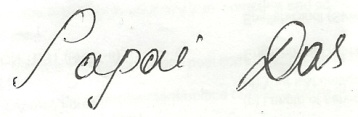 Papai Das